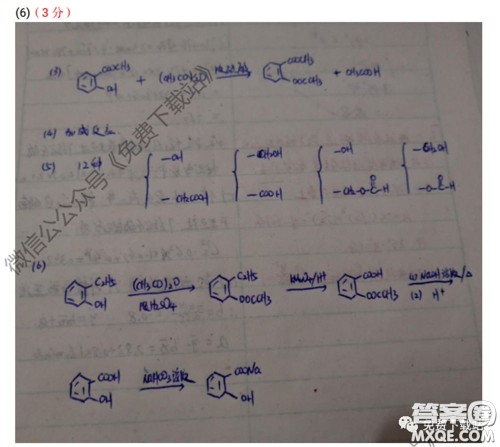 (6)(3分)
(3) COOCH3 OH + (CH3CO)2O 浓H2SO4 COOCH3 OOCCH3 + CH3COOH
(4) 反应
(5) 12种 —OH —CH2COOH —CH2OH —COOH —OH —CH2-O-C-H O —CH2OH —O-C-H O
(6) C2H5 OH (CH3CO)2O 浓H2SO4 C2H5 OOCCH3 KMnO4/H+ COOH OOCCH3 (1) NaOH溶液/△ (2) H+
COOH OH NaHCO3溶液 COONa OH
微信公众号《免费下载站》
答案圈
免费下载站
MXQE.COM